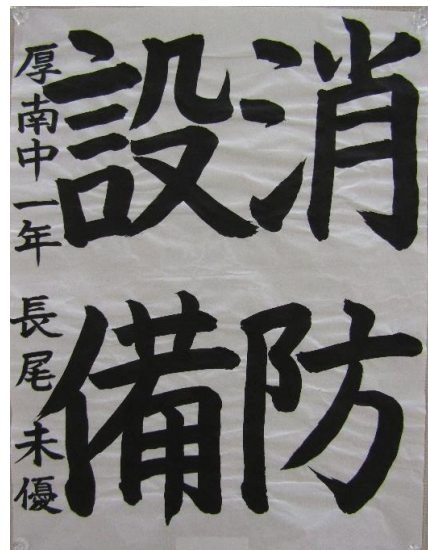 消防
設備
厚南中一年 長尾未優